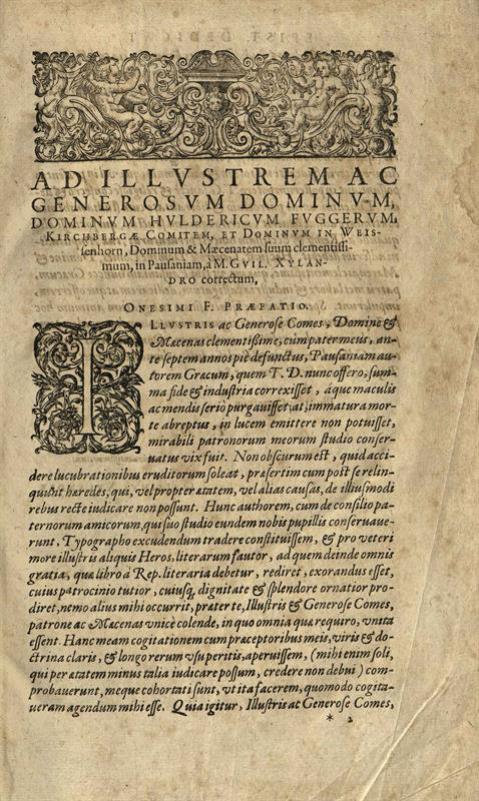 AD ILLVSTREM AC
GENEROSVM DOMINVM,
DOMINVM HVLDERICVM FVGGERVM,
KIRCHBERGÆ COMITEM, ET DOMINVM IN WEIS-
senhorn, Dominum & Mæcenatem suum clementissi-
mum, in Pausaniam, à M. GVIL. XYLAN-
DRO correctum,
ONESIMI F. PRÆFATIO.
ILLVSTRIS ac Generose Comes, Domine &
Mæcenas clementißime, cùm pater meus, an-
te septem annos piè defunctus, Pausaniam au-
torem Græcum, quem T. D. nunc offero, sum-
ma fide & industria correxisset, àque maculis
ac mendis seriò purgauisset; at, immatura mor-
te abreptus, in lucem emittere non potuisset,
mirabili patronorum meorum studio conser-
uatus vix fuit. Non obscurum est, quid acci-
dere lucubrationibus eruditorum soleat, præsertim cum post se relin-
quunt hæredes, qui, vel propter ætatem, vel alias causas, de illiusmodi
rebus rectè iudicare non possunt. Hunc authorem, cum de consilio pa-
ternorum amicorum, qui suo studio eundem nobis pupillis conseruaue-
runt, Typographo excudendum tradere constituissem, & pro veteri
more illustris aliquis Heros, literarum fautor, ad quem deinde omnis
gratia, quæ libro à Rep. literaria debetur, rediret, exorandus esset,
cuius patrocinio tutior, cuiusq; dignitate & splendore ornatior pro-
diret, nemo alius mihi occurrit, præter te, Illustris & Generose Comes,
patrone ac Mæcenas vnicè colende, in quo omnia quæ requiro, vnita
essent. Hanc meam cogitationem cum præceptoribus meis, viris & do-
ctrina claris, & longo rerum vsu peritis, aperuissem, (mihi enim soli,
qui per ætatem minus talia iudicare possum, credere non debui) com-
probauerunt, meque cohortati sunt, vt ita facerem, quomodo cogita-
ueram agendum mihi esse. Quia igitur, Illustris ac Generose Comes,
* 2